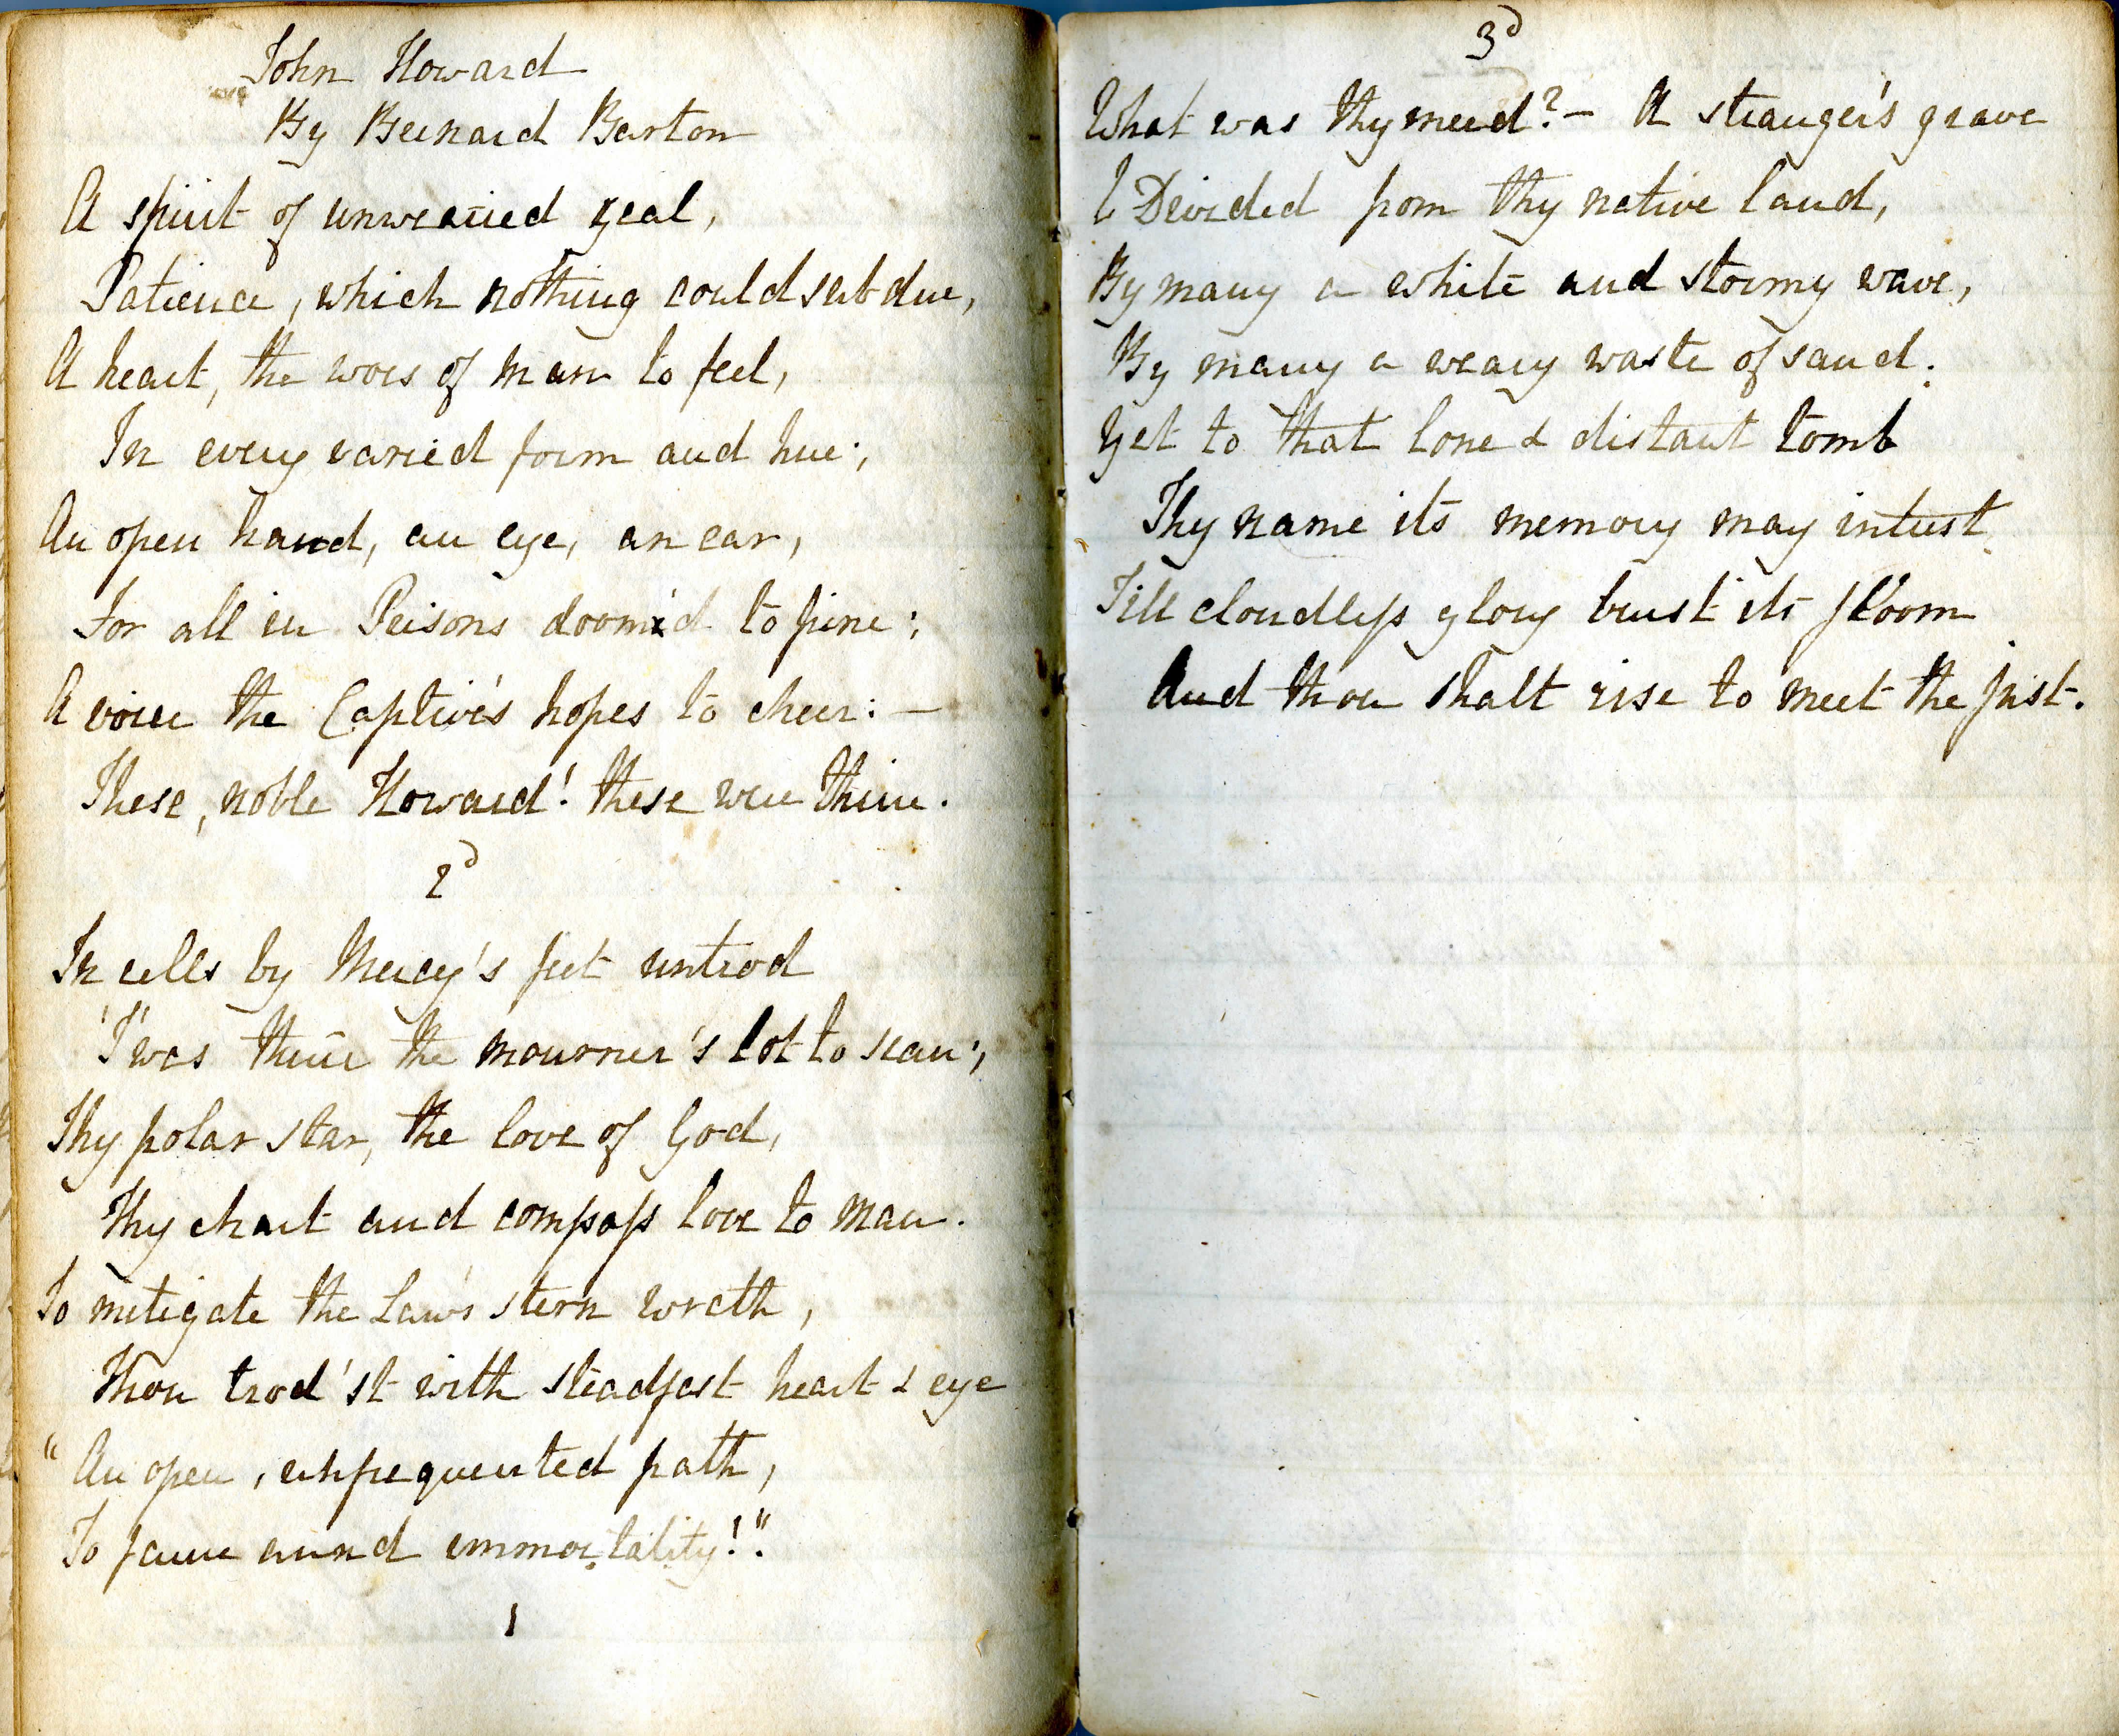 John Howard
By Bernard Barton
A spirit of unwearied zeal,
Patience, which nothing could subdue,
A heart, the woes of man to feel,
In every varied form and hue;
An open hand, an eye, an ear,
For all in Prisons doom'd to pine;
A voice the Captive's hopes to cheer: —
These, noble Howard! these were thine.
2d
In cells by Mercy's feet untrod
'T'was thine the mourner's lot to scan;
Thy polar star, the love of God,
Thy chart and compass love to man.
To mitigate the Law's stern wrath,
Thou trod'st with steadfast heart & eye
"An open, unfrequented path,
To fame annd immortality!".
1
3d
What was thy meed? — A stranger's grave
Divided from thy native land,
By many a white and stormy wave,
By many a weary waste of sand.
Yet to that lone & distant tomb
Thy name its memory may intrust
Till cloudless glory burst its gloom
And thou shalt rise to meet the just.